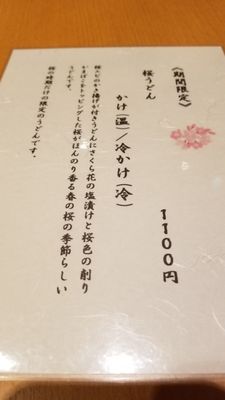 〈期間限定〉
桜うどん
1100円
かけ(温)/冷かけ(冷)
桜えびのかき揚げが付きうどんにさくら花の塩漬けと桜色の削り
かまぼこをトッピングした桜がほんのり香る春の桜の季節らしい
うどんです。
桜の時期だけの限定のうどんです。